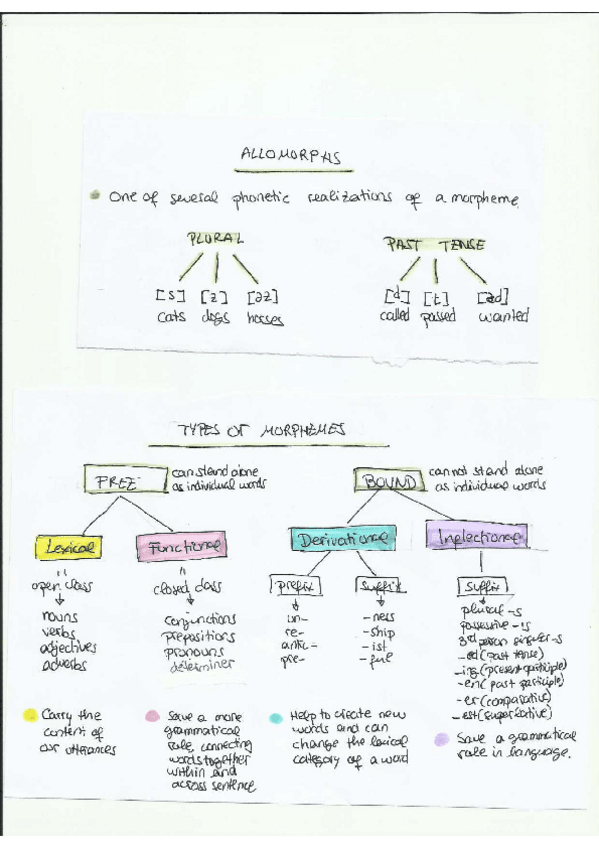 ALLOMORPHS
One of several phonetic realizations of a morpheme.
PLURAL PAST TENSE
[s] [z] [əz] [d] [t] [əd]
cats dogs horses called passed wanted
TYPES OF MORPHEMES
FREE can stand alone as individual words
BOUND cannot stand alone as individual words
Lexical Functional Derivational Inflectional
open class closed class Prefix Suffix Suffix
nouns
verbs
adjectives
adverbs
conjunctions
prepositions
pronouns
determiner
un-
re-
pre-
-ness
-ship
-ist
plural -s
possessive -'s
3rd person singular -s
-ed (past tense)
-ing (present participle)
-en (past participle)
-er (comparative)
-est (superlative)
Carry the
content of
our utterances
Serve a more
grammatical
role, connecting
words together
within and
across sentence
Help to create new
words and can
change the lexical
category of a word
Serve a grammatical
role in language.